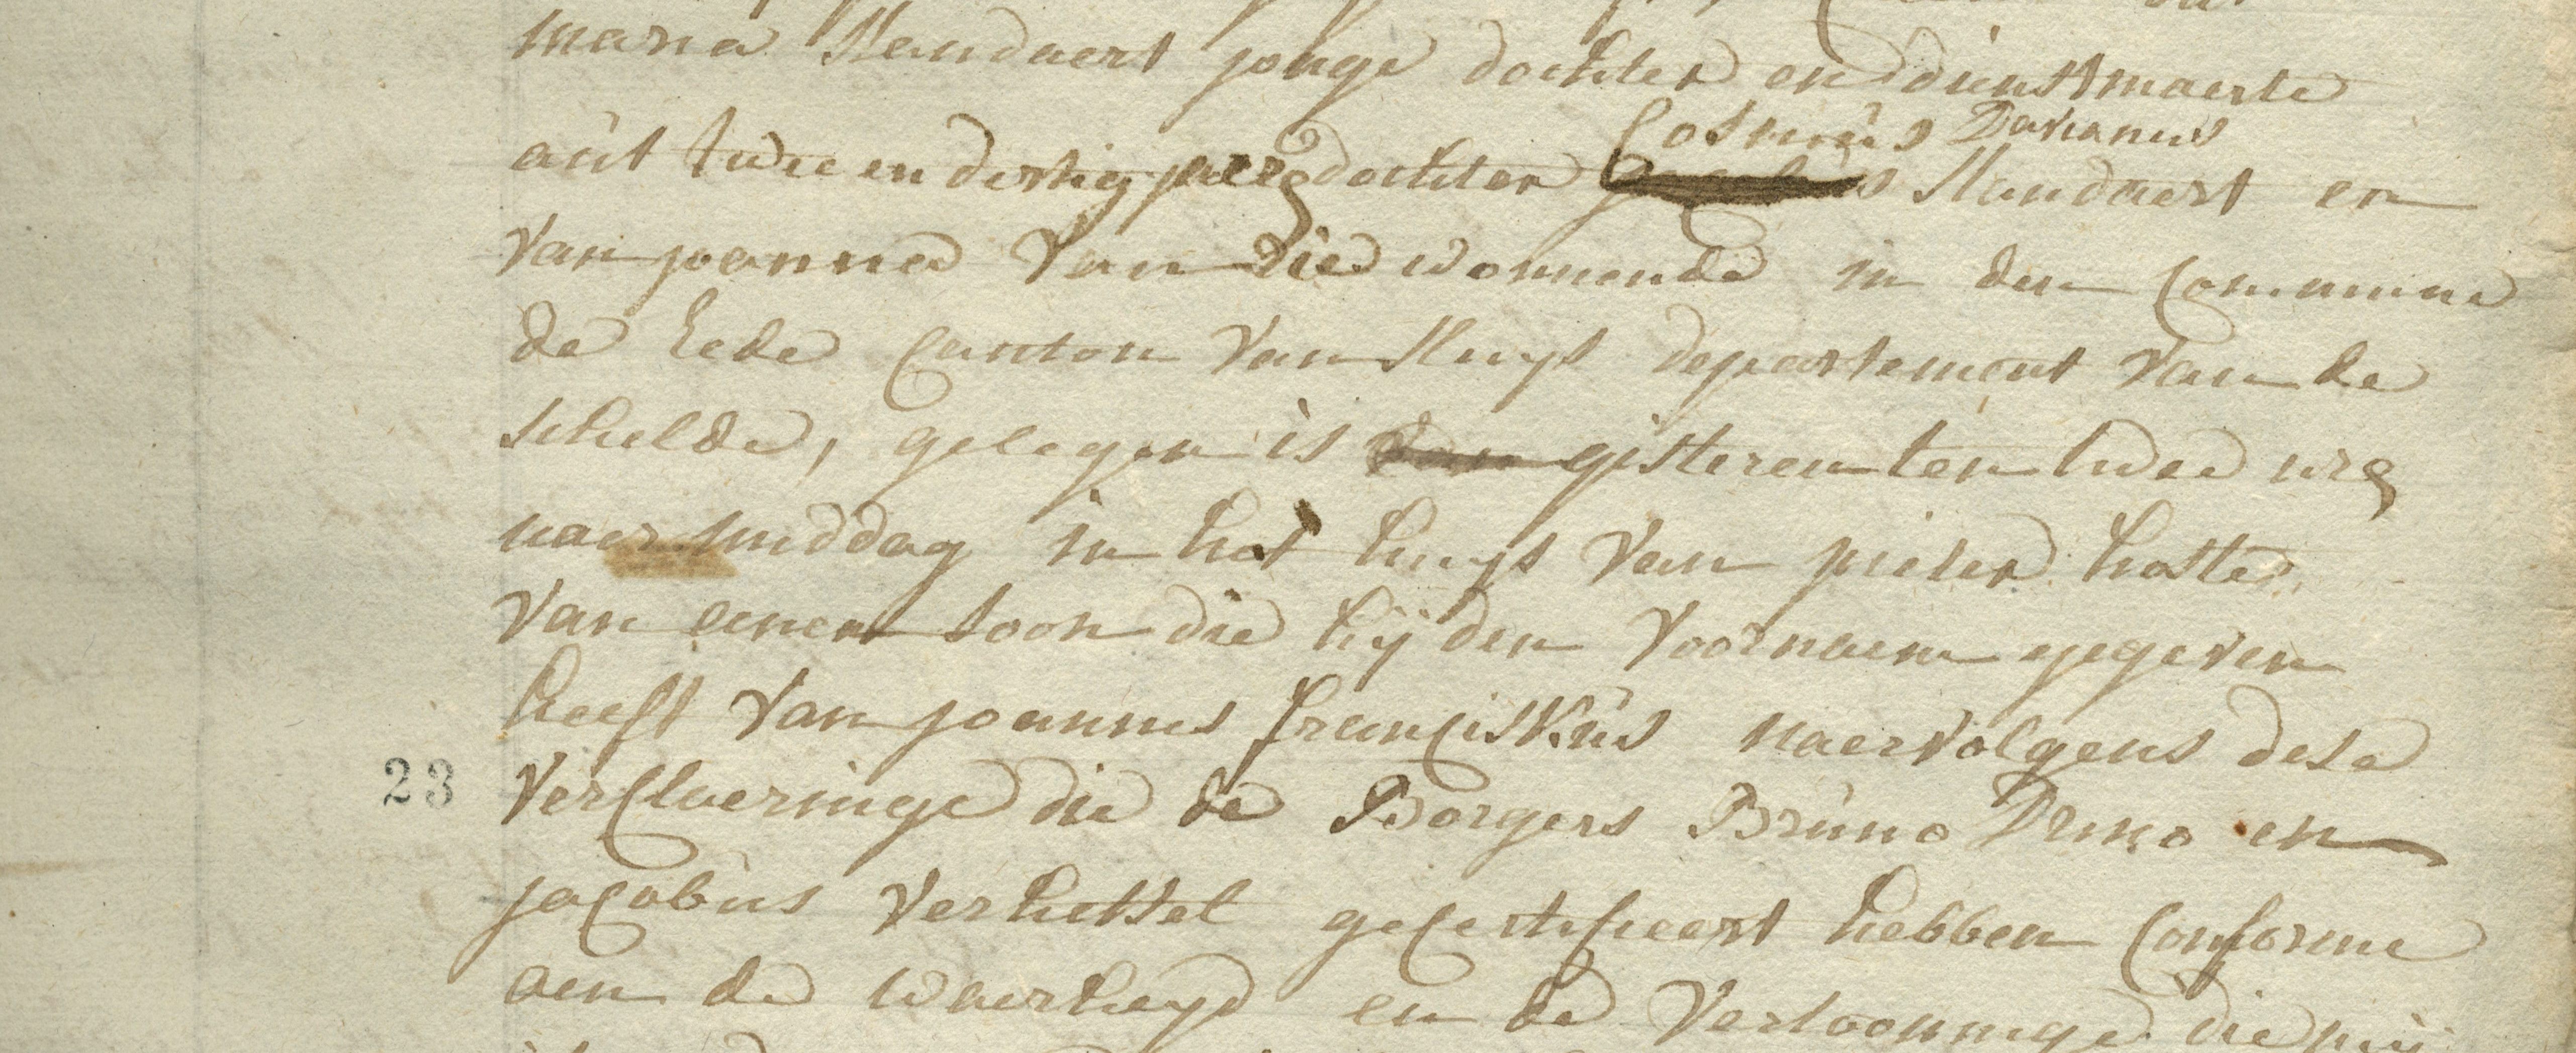 maria Standaert jonge dochter en dienstmaerte
Cosmus Damianus
aut twee en dertig jaeren dochter Standaert en
van joanna Van Die wonnende in den Commune
de Eede Canton van Sluys departement van de
schelde, gelegen is gisteren ten twee uren
naer middag in het huys van pieter
van eenen soon die hij den voornaem gegeven
heeft van joannes franciskus naervolgens dese
23 verclaeringe die de Borgers Bruno en
jacobus Verhettel gecertifieert hebben Conforme
aen de waerheyd en de vertooninge die mij